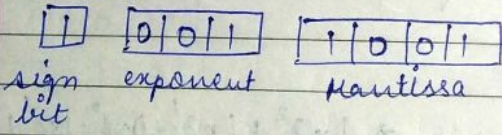 1 0 0 1 1 0 0 1
sign exponent Mantissa
bit